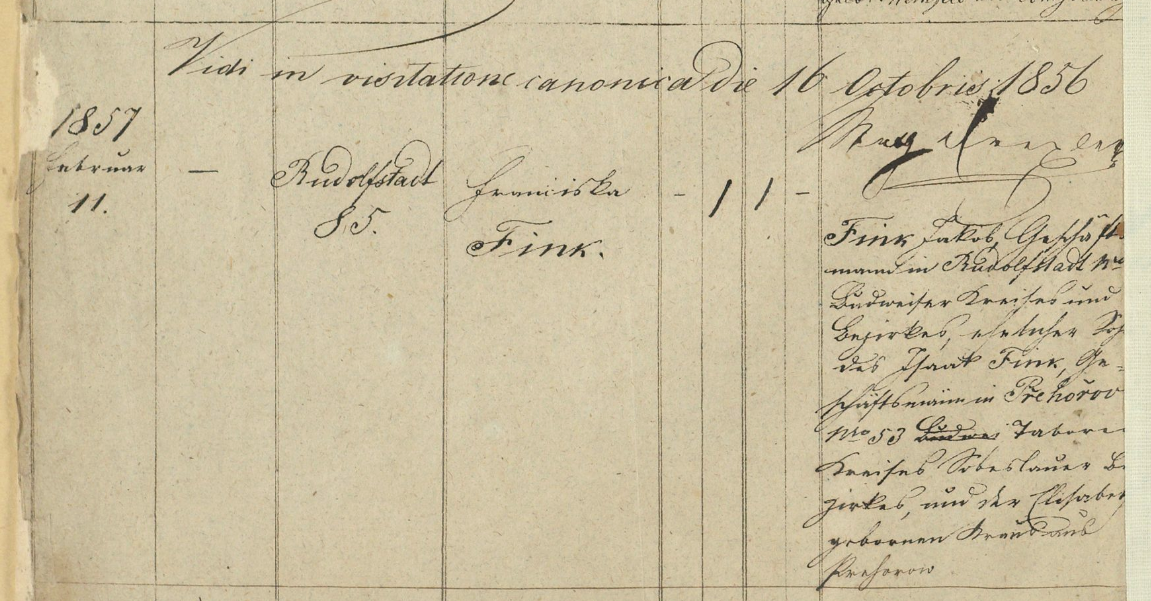 Vidi in visitatione canonica die 16 Octobris 1856
1857
Februar
11.
—
Rudolfstadt
85.
Franciska
Fink.
- 1 1 -
Fink Jakob, Geschäfts
mann in Rudolfstadt Nro
Budweiser Kreises und
Bezirkes, ehelicher Soh
des Isaak Fink, Ge-
schäftsmann in Přehořov
Nro 53 Budwei Taborer
Kreises Sobeslauer Be
zirkes, und der Elisabet
gebornen Kraus aus
Prehorow